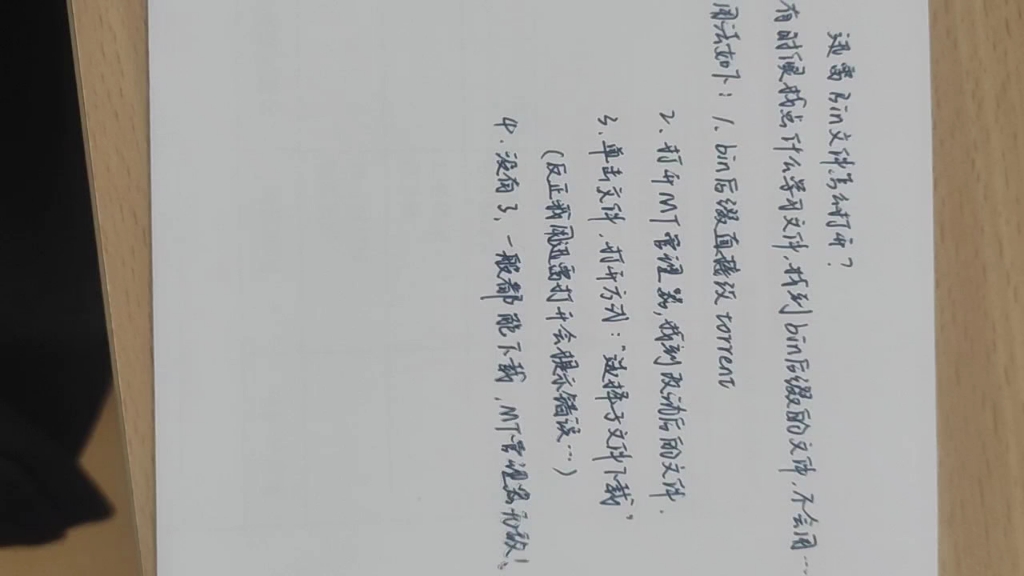 迅雷Bin文件怎么打开?
有时候找点什么学习文件,找到bin后缀的文件,不会用…
用法如下:1.bin后缀直接改torrent
2.打开MT管理器,找到改动后的文件.
3.单击文件,打开方式:"选择子文件下载"
(反正我用迅雷打开会提示错误…)
4.没有了,一般都能下载,MT管理器万歳!